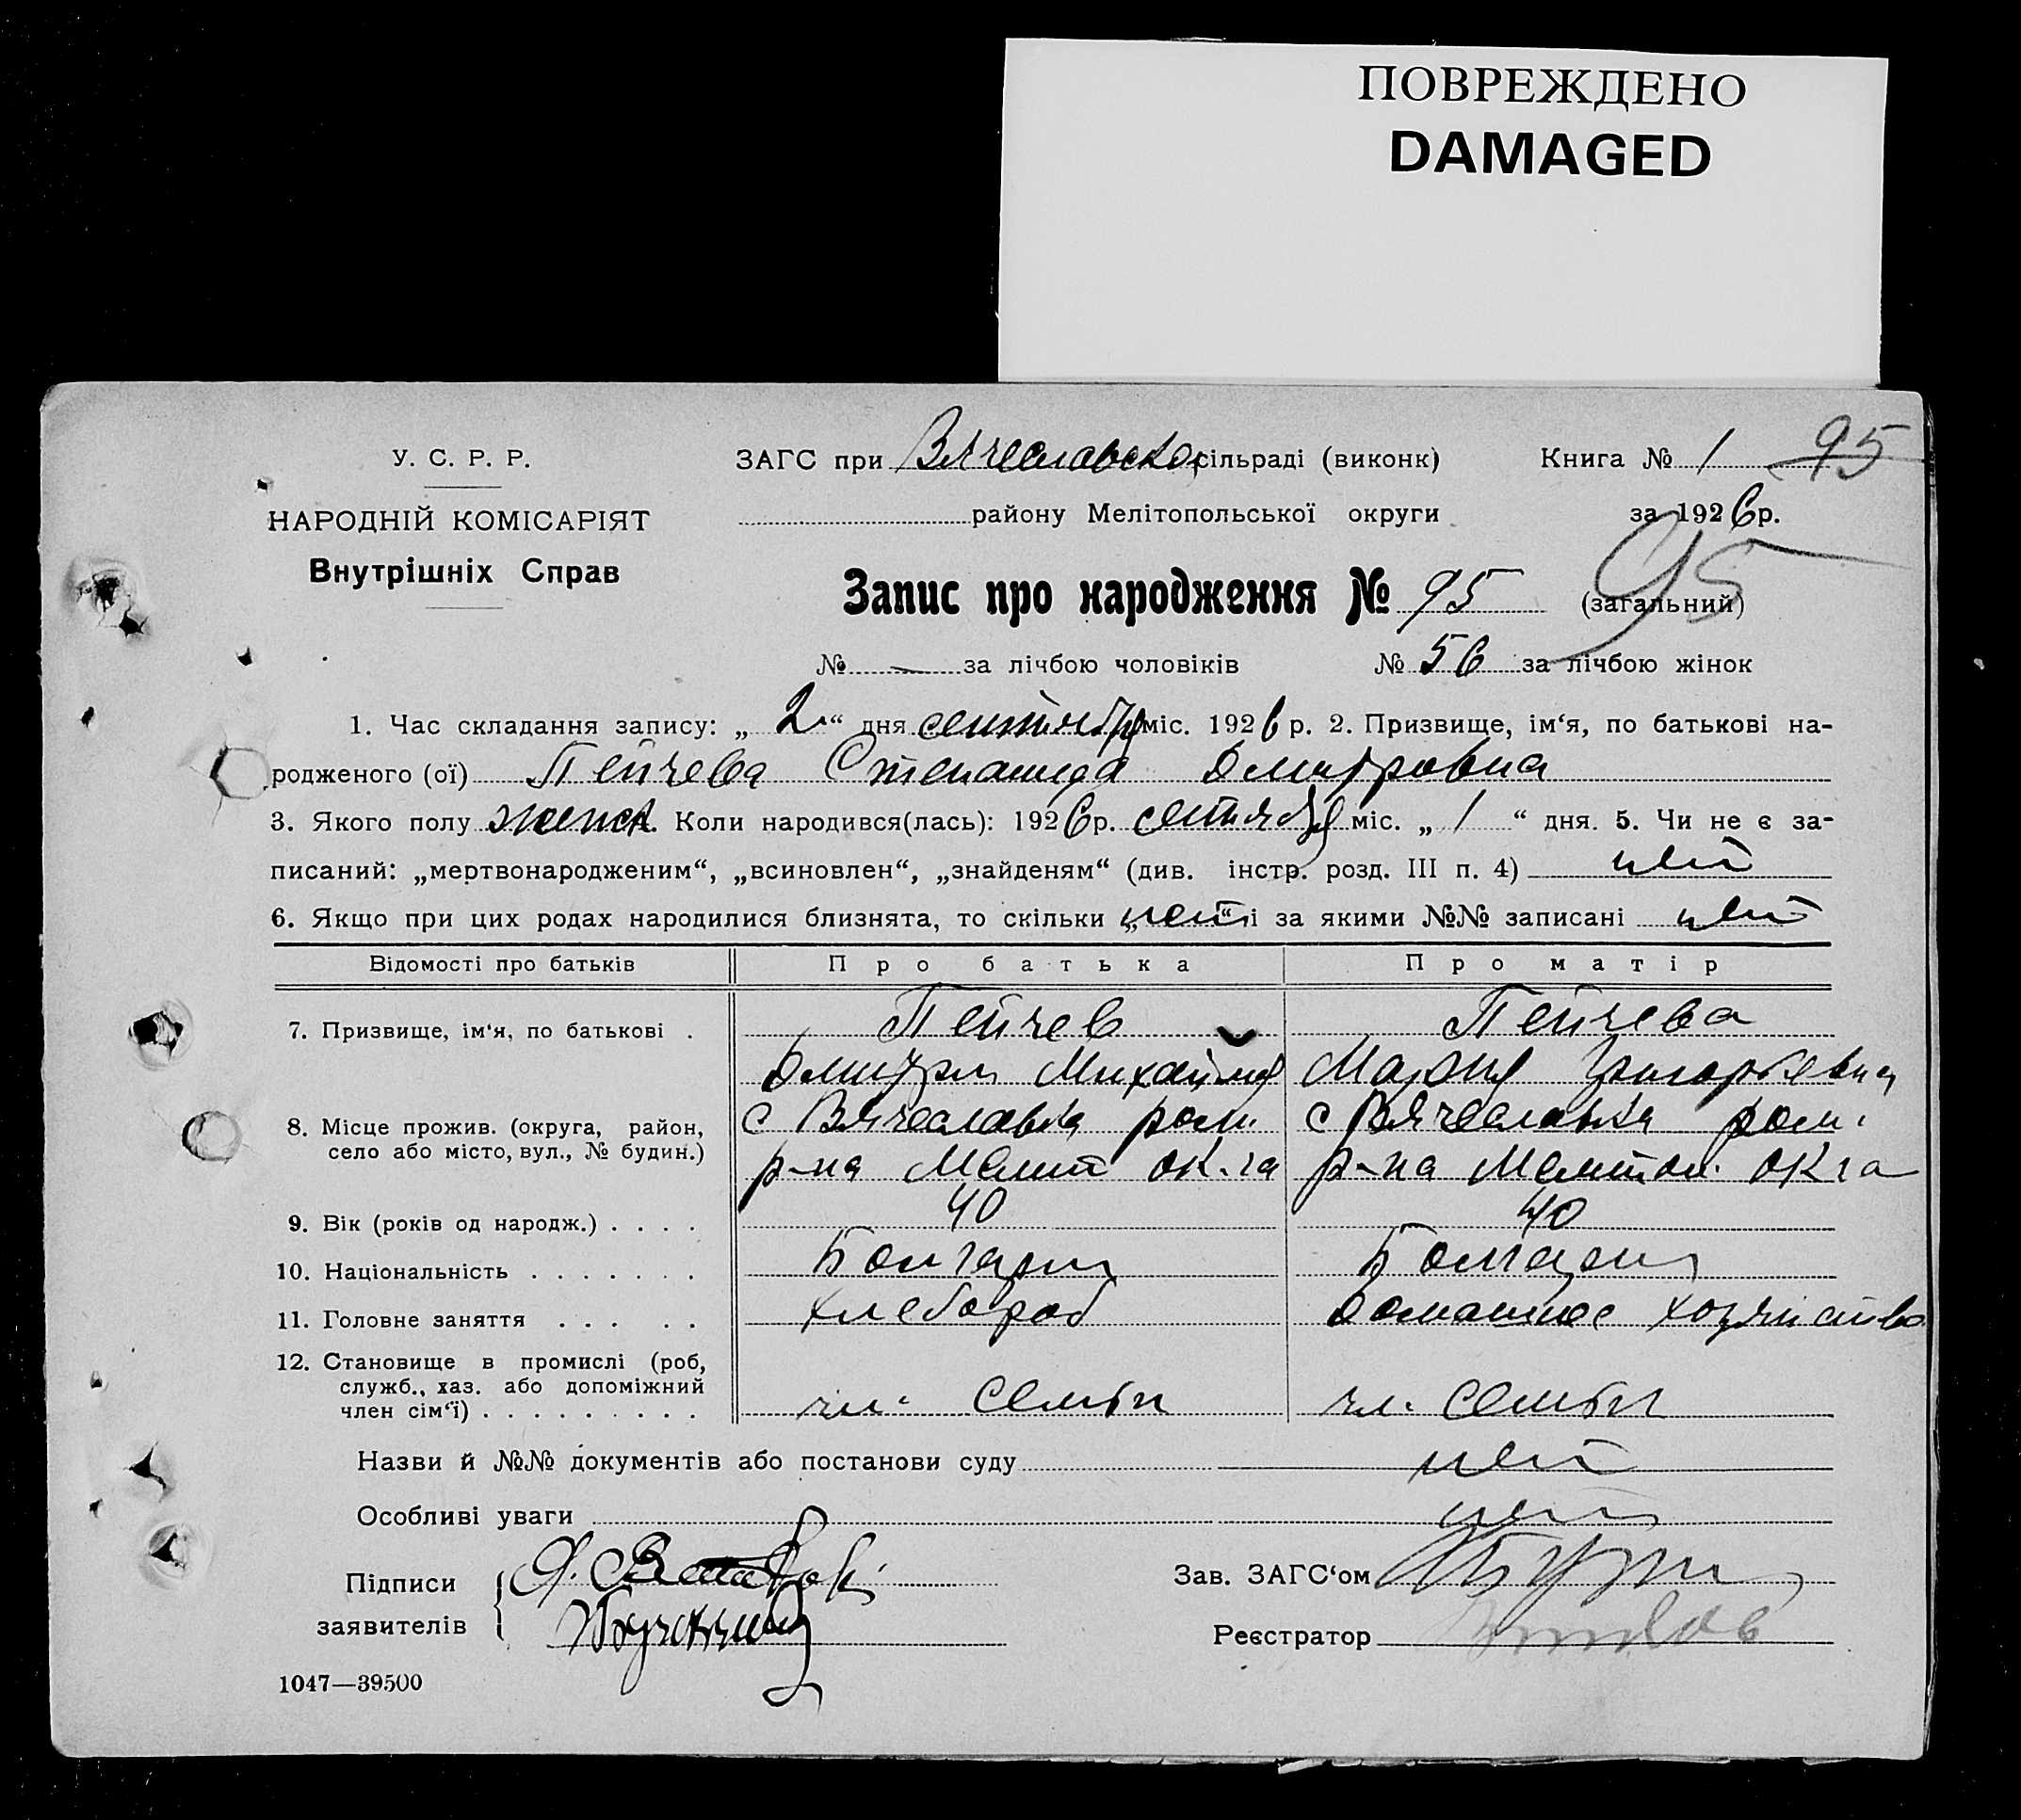 ПОВРЕЖДЕНО
DAMAGED
У. С. Р. Р.
НАРОДНІЙ КОМІСАРІЯТ
Внутрішніх Справ
ЗАГС при Вячеславской сільраді (виконк)
Книга № 1 95
району Мелітопольської округи
за 1926 р.
Запис про народження № 95 (загальний)
95
№ — за лічбою чоловіків № 56 за лічбою жінок
1. Час складання запису: „ 2 “ дня сентября міс. 1926 р. 2. Призвище, ім‘я, по батькові на-
родженого (ої) Пейчева Степанида Дмитровна
3. Якого полу женск. Коли народився(лась): 1926 р. сентября міс. „ 1 “ дня. 5. Чи не є за-
писаний: „мертвонародженим“, „всиновлен“, „знайденям“ (див. інстр. розд. III п. 4) нет
6. Якщо при цих родах народилися близнята, то скільки „нет“ і за якими №№ записані нет
Відомості про батьків Про батька Про матір
7. Призвище, ім‘я, по батькові . Пейчев Пейчева
Дмитрий Михайлов Мария Григорьевна
8. Місце прожив. (округа, район, с Вячеславка ром. с Вячеславка ром.
село або місто, вул., № будин.) р-на Мелит ок-га р-на Мелитоп. окга
9. Вік (років од народж.) . . . . 40 40
10. Національність . . . . . . . Болгари Болгари
11. Головне заняття . . . . . хлебороб домашнее хозяйство
12. Становище в промислі (роб,
служб., хаз. або допоміжний
член сім‘ї) . . . . . . . . . чл. семьи чл. семьи
Назви й №№ документів або постанови суду нет
Особливі уваги нет
Підписи
заявителів
Зав. ЗАГС‘ом
Реєстратор
1047—39500